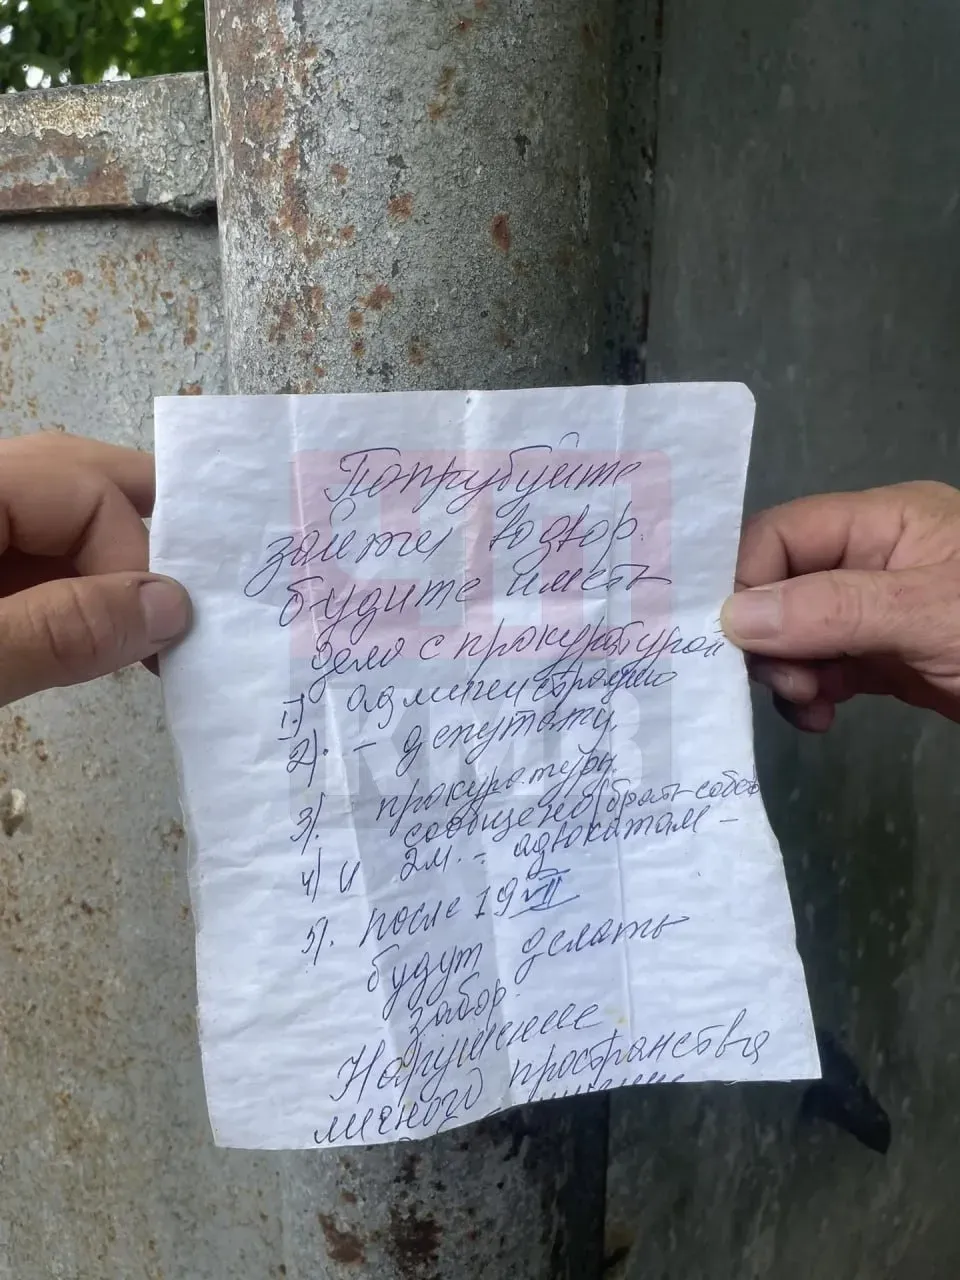 Попрубуйте
зайти водвор.
будите иметь
дело с прокуратурой
1) администрацию
2). – депутату
3). прокуратуры
сообщено (брать
4) и 2м. – адвокатам –
5). после 19 VII
будут делать
забор.
Нарушение
личного пространства
ЧП
КМВ